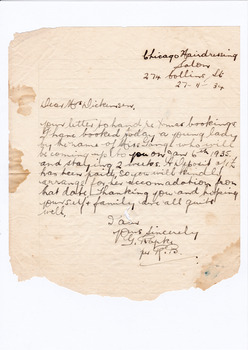 Chicago Hairdressing
Salon
274 Collins St
27-11-34
Dear Mr Dickenson,
Your letter to hand re Xmas bookings
I have booked today a young lady
by the name of Miss who will
be coming up to you on Jan 5th 1935
and staying 2 weeks. A deposit of
has been paid, so you will kindly
arrange for her accomodation from
that date, thanking you and hoping
yourself & family are all quite
well,
I am
Yours Sincerely
G.
per R.B.